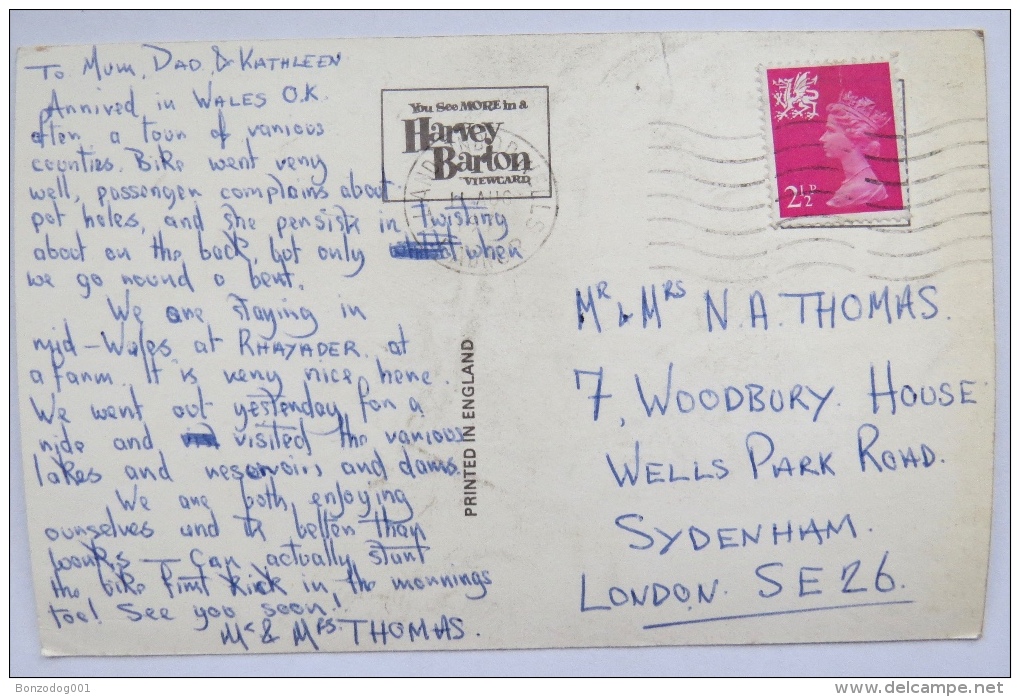 To Mum, Dad, & Kathleen
Arrived in WALES O.K.
after a tour of various
counties. Bike went very
well, passenger complains about
pot holes, and she persists in twisting
about on the back, but only when
we go round a bent.
We are staying in
mid-Wales at RHAYADER, at
a farm. It is very nice here.
We went out yesterday for a
ride and visited the various
lakes and reservoirs and dams.
We are both enjoying
ourselves and it better than
works - Can actually start
the bike first kick in the mornings
too! See you soon!
Mr & Mrs. THOMAS.
PRINTED IN ENGLAND
You See MORE in a
Harvey
Barton
VIEWCARD
11 AUG
2½P
MR & MRS N. A. THOMAS.
7, WOODBURY HOUSE
WELLS PARK ROAD.
SYDENHAM.
LONDON. SE26.
Bonzodog001
www.delcampe.net